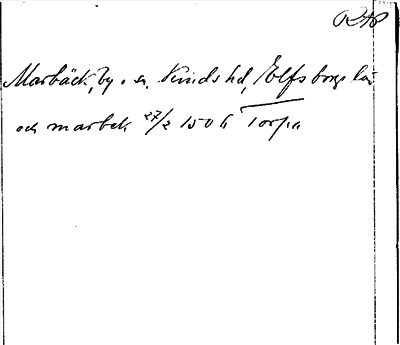 Marbäck, by o. sn. Kinds hd, Elfsborgs län
och marbek 27/2 150 Torpa